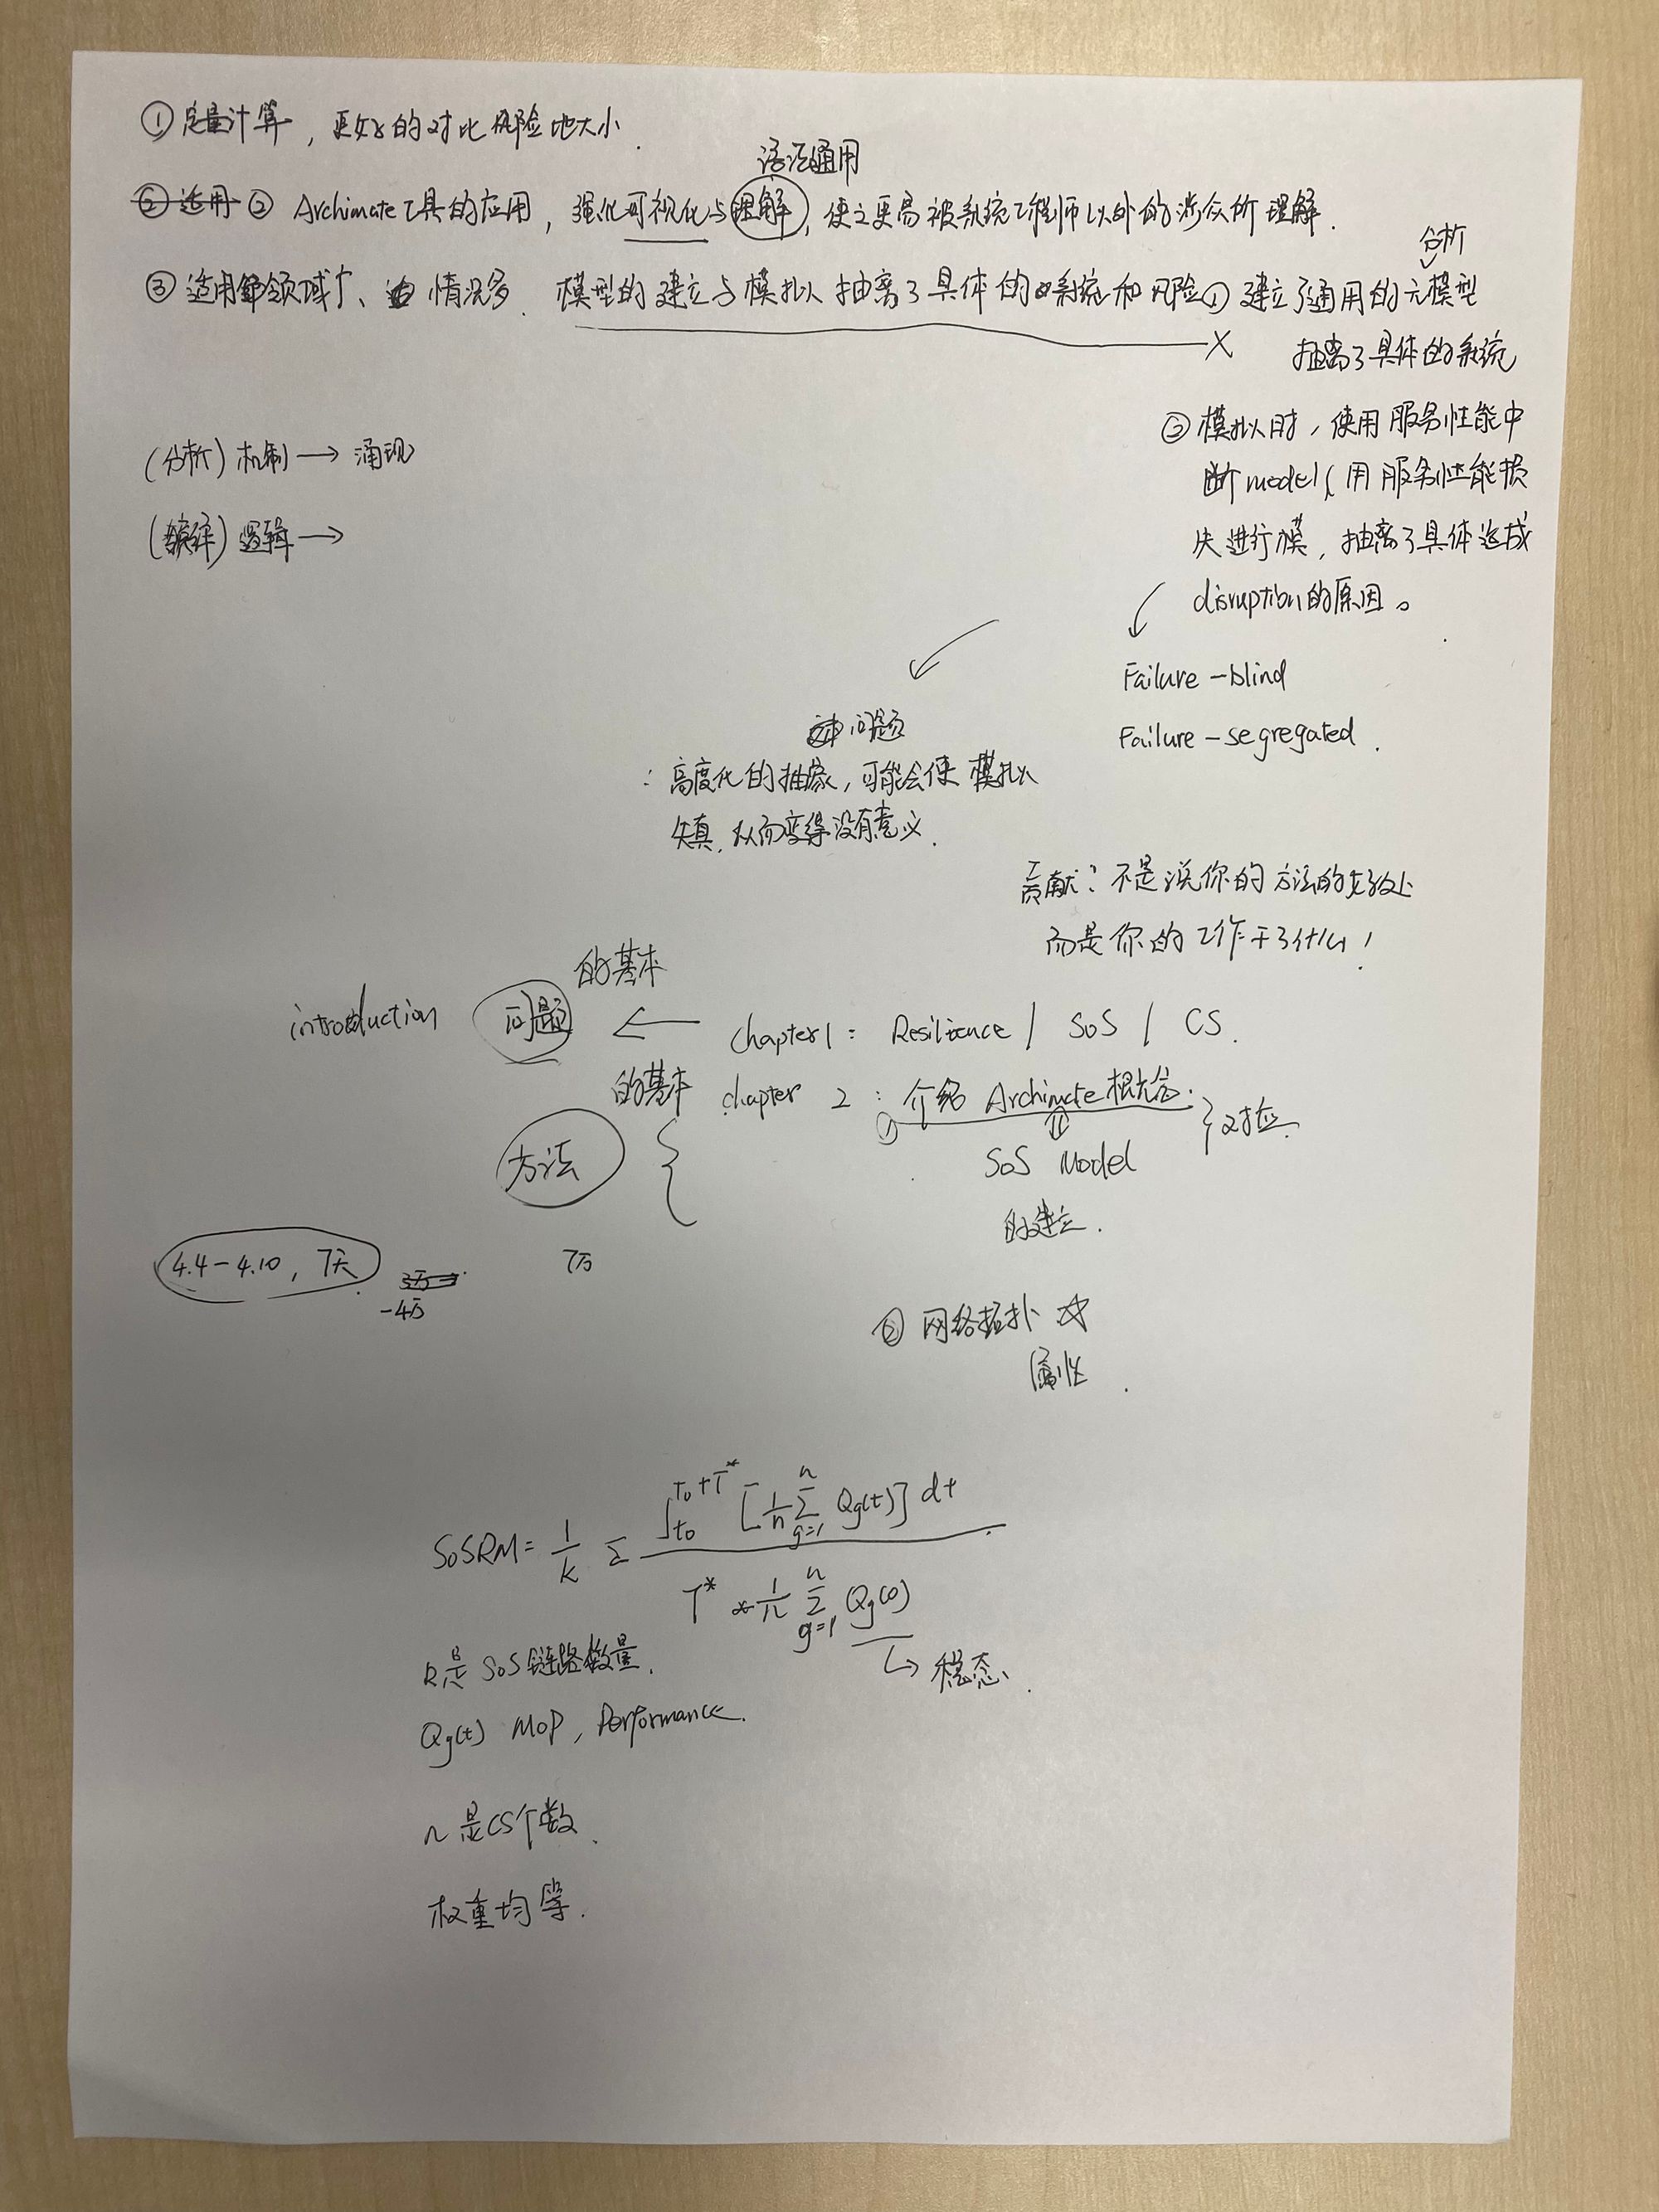 ① 定量计算,更好的对比风险地大小.
语法通用
② 适用 ② Archimate工具的应用,强化可视化与理解,使之更易被系统工程师以外的涉众所理解.
③ 适用领域广、情况多. 模型的建立与模拟抽离了具体的系统和风险 ① 建立了通用的元模型
分析
抽离了具体的系统
② 模拟时,使用服务性能中
断model(用服务性能损
失进行模,抽离了具体造成
disruption的原因。
(分析)机制→涌现
(演绎)逻辑→
Failure-blind
Failure-segregated.
问题
:高度化的抽象,可能会使模拟
失真,从而变得没有意义.
贡献?不是说你的方法的好处
而是你的工作干了什么!
的基本
introduction 问题 ← chapter1: Resilience / SoS / CS.
的基本 chapter 2: ① 介绍 Archimate概念. } 对应.
方法 {
SoS Model
的建立.
4.4-4.10, 7天 3万
-4万
7万
② 网络拓扑
属性.
SoSRM = 1/k Σ ∫_{t0}^{T0+T*} [1/n Σ_{g=1}^{n} Qg(t)] dt / T* * 1/n Σ_{g=1}^{n} Qg(0)
↳ 稳态.
k是 SoS链路数量.
Qg(t) MoP, Performance.
n是CS个数.
权重均等.